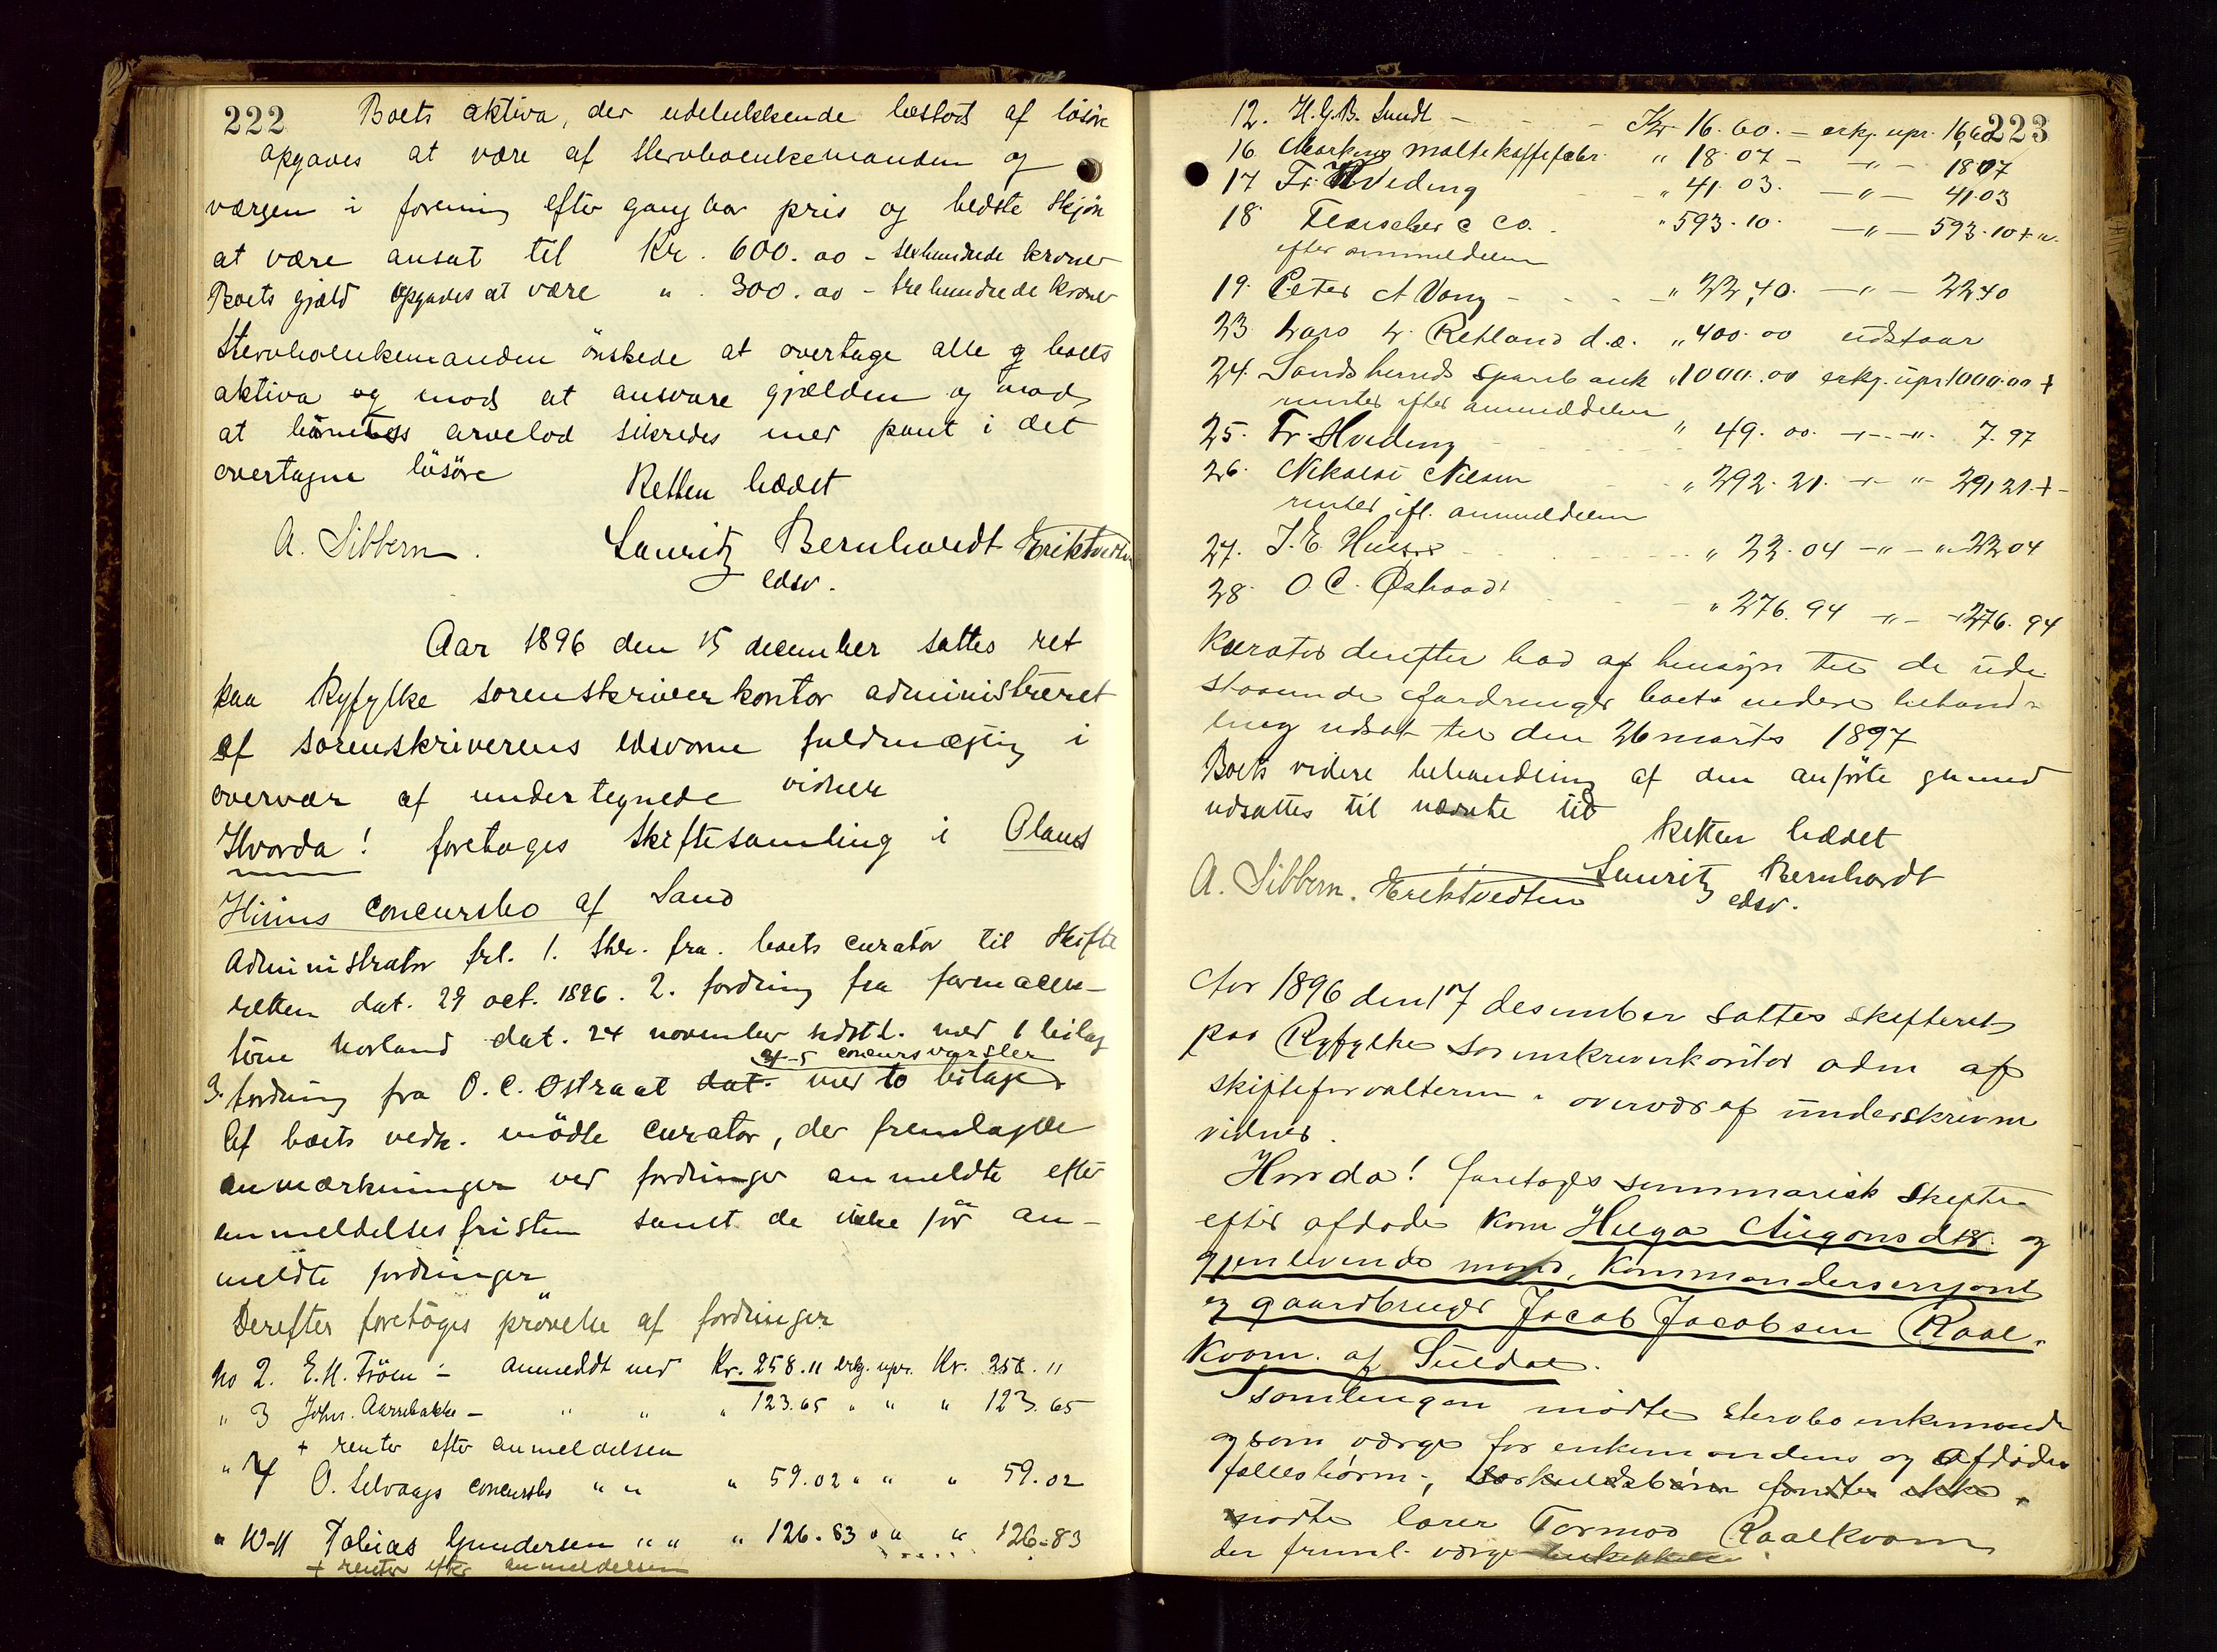 222
Boets aktiva, der udelukkende bestod af løsøre
opgaves at være af stervboenkemanden og
værgen i forening efter gangbar pris og bedste skjøn
at være ansat til Kr. 600.00 - sexhundrede kroner
Boets gjæld opgaves at være " 300.00 - trehundrede kroner
Stervboenkemanden ønskede at overtage alle boets
aktiva og mod at ansvare gjælden og mod
at børnenes arvelod sikredes med pant i det
overtagne løsøre
Retten hævet
A. Sibbern. Lauritz Bernhardt Erik Tvedten
edsv.
Aar 1896 den 15 december sattes ret
paa Ryfylke sorenskriverkontor administreret
af sorenskriverens edsvorne fuldmægtig i
overvær af undertegnede vidner
Hvorda! foretoges skiftesamling i Olaus
Hiims concursbo af Sand
Administrator frl. 1. Skr. fra boets curator til skifte
retten dat. 29 oct. 1896. 2. fordring fra farmaceu-
terne Norland dat. 24 november sidstl. med 1 bilag
af 5 concursvarsler
3. fordring fra O. C. Østraat dat. med to bilage
Af boets vedk. mødte curator, der fremlagde
anmærkninger ved fordringer anmeldte efter
anmeldelsesfristen samt de ikke før an-
meldte fordringer
Derefter foretoges prøvelse af fordringer
No 2. E. H. Tröen - anmeldt med Kr. 258.11 erkj. upr. Kr. 258.11
" 3 John. Aarrebakke - " " " 123.65 " " " 123.65
+ renter efter anmeldelsen
" 7 O. Selvaags concursbo " " " 59.02 " " " 59.02
" 10-11 Tobias Gundersen " " " 126.83 " " " 126.83
+ renter efter anmeldelsen
223
12. H.G.B. Sundt - - - Kr 16.60. - erkj. upr. 16,60
16 Markens maltekaffefabr. " 18.07 - -"- 18.07
17 Fr. Hveding " 41.03. -"- 41.03
18 Fleischer & Co. " 593.10. -"- 593.10 + r.
efter anmeldelsen
19. Peter A Vang - - - " 22,40. -"- 22.40
23. Lars L. Retland d.æ. " 400.00 udstaar
24. Sands herreds sparebank " 1000.00 erkj. upr 1000.00 +
renter efter anmeldelsen
25. Fr. Hveding " 49.00. -"- 7.97
26. Nikolai Nilsen " 292.21. -"- 291 21 +
renter ifl. anmeldelsen
27. J. E. " 22.04 -"- " 22 04
28. O C. Østraadt " 276.94 -"- 276.94
Kurator derefter bad af hensyn til de ude
staaende fordringer boets videre behand-
ling udsat til den 26 marts 1897
Boets videre behandling af den anførte grund
udsattes til nævnte tid
Retten hævet
A. Sibbern. Erik Tvedten Lauritz Bernhardt
edsv.
Aar 1896 den 17 desember sattes skifteret
paa Ryfylke sorenskriverkontor adm af
skifteforvalteren i overvær af underskrevne
vidner.
Hvorda! foretoges summarisk skifte
efter afdøde kone Helga Augonsdtr. og
gjenlevende mand, Kommandersersjant
og gaardbruger Jacob Jacobsen Raal-
kvam. af Suldal.
I samlingen mødte stervboenkemand
og som værge for enkemandens og afdødes
fælles børn -, særkuldsbørn fandtes ikke,
mødte lærer Tormod Raalkvam
der freml. værge